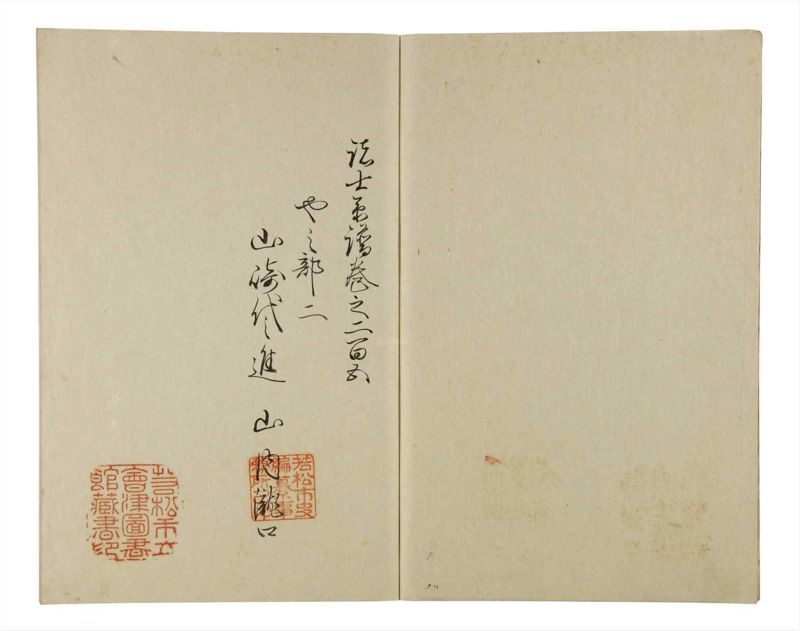 諸士系譜巻之二百五
や之部二
山崎代進 山内
若松市史
若松市立
會津圖書
館藏書印